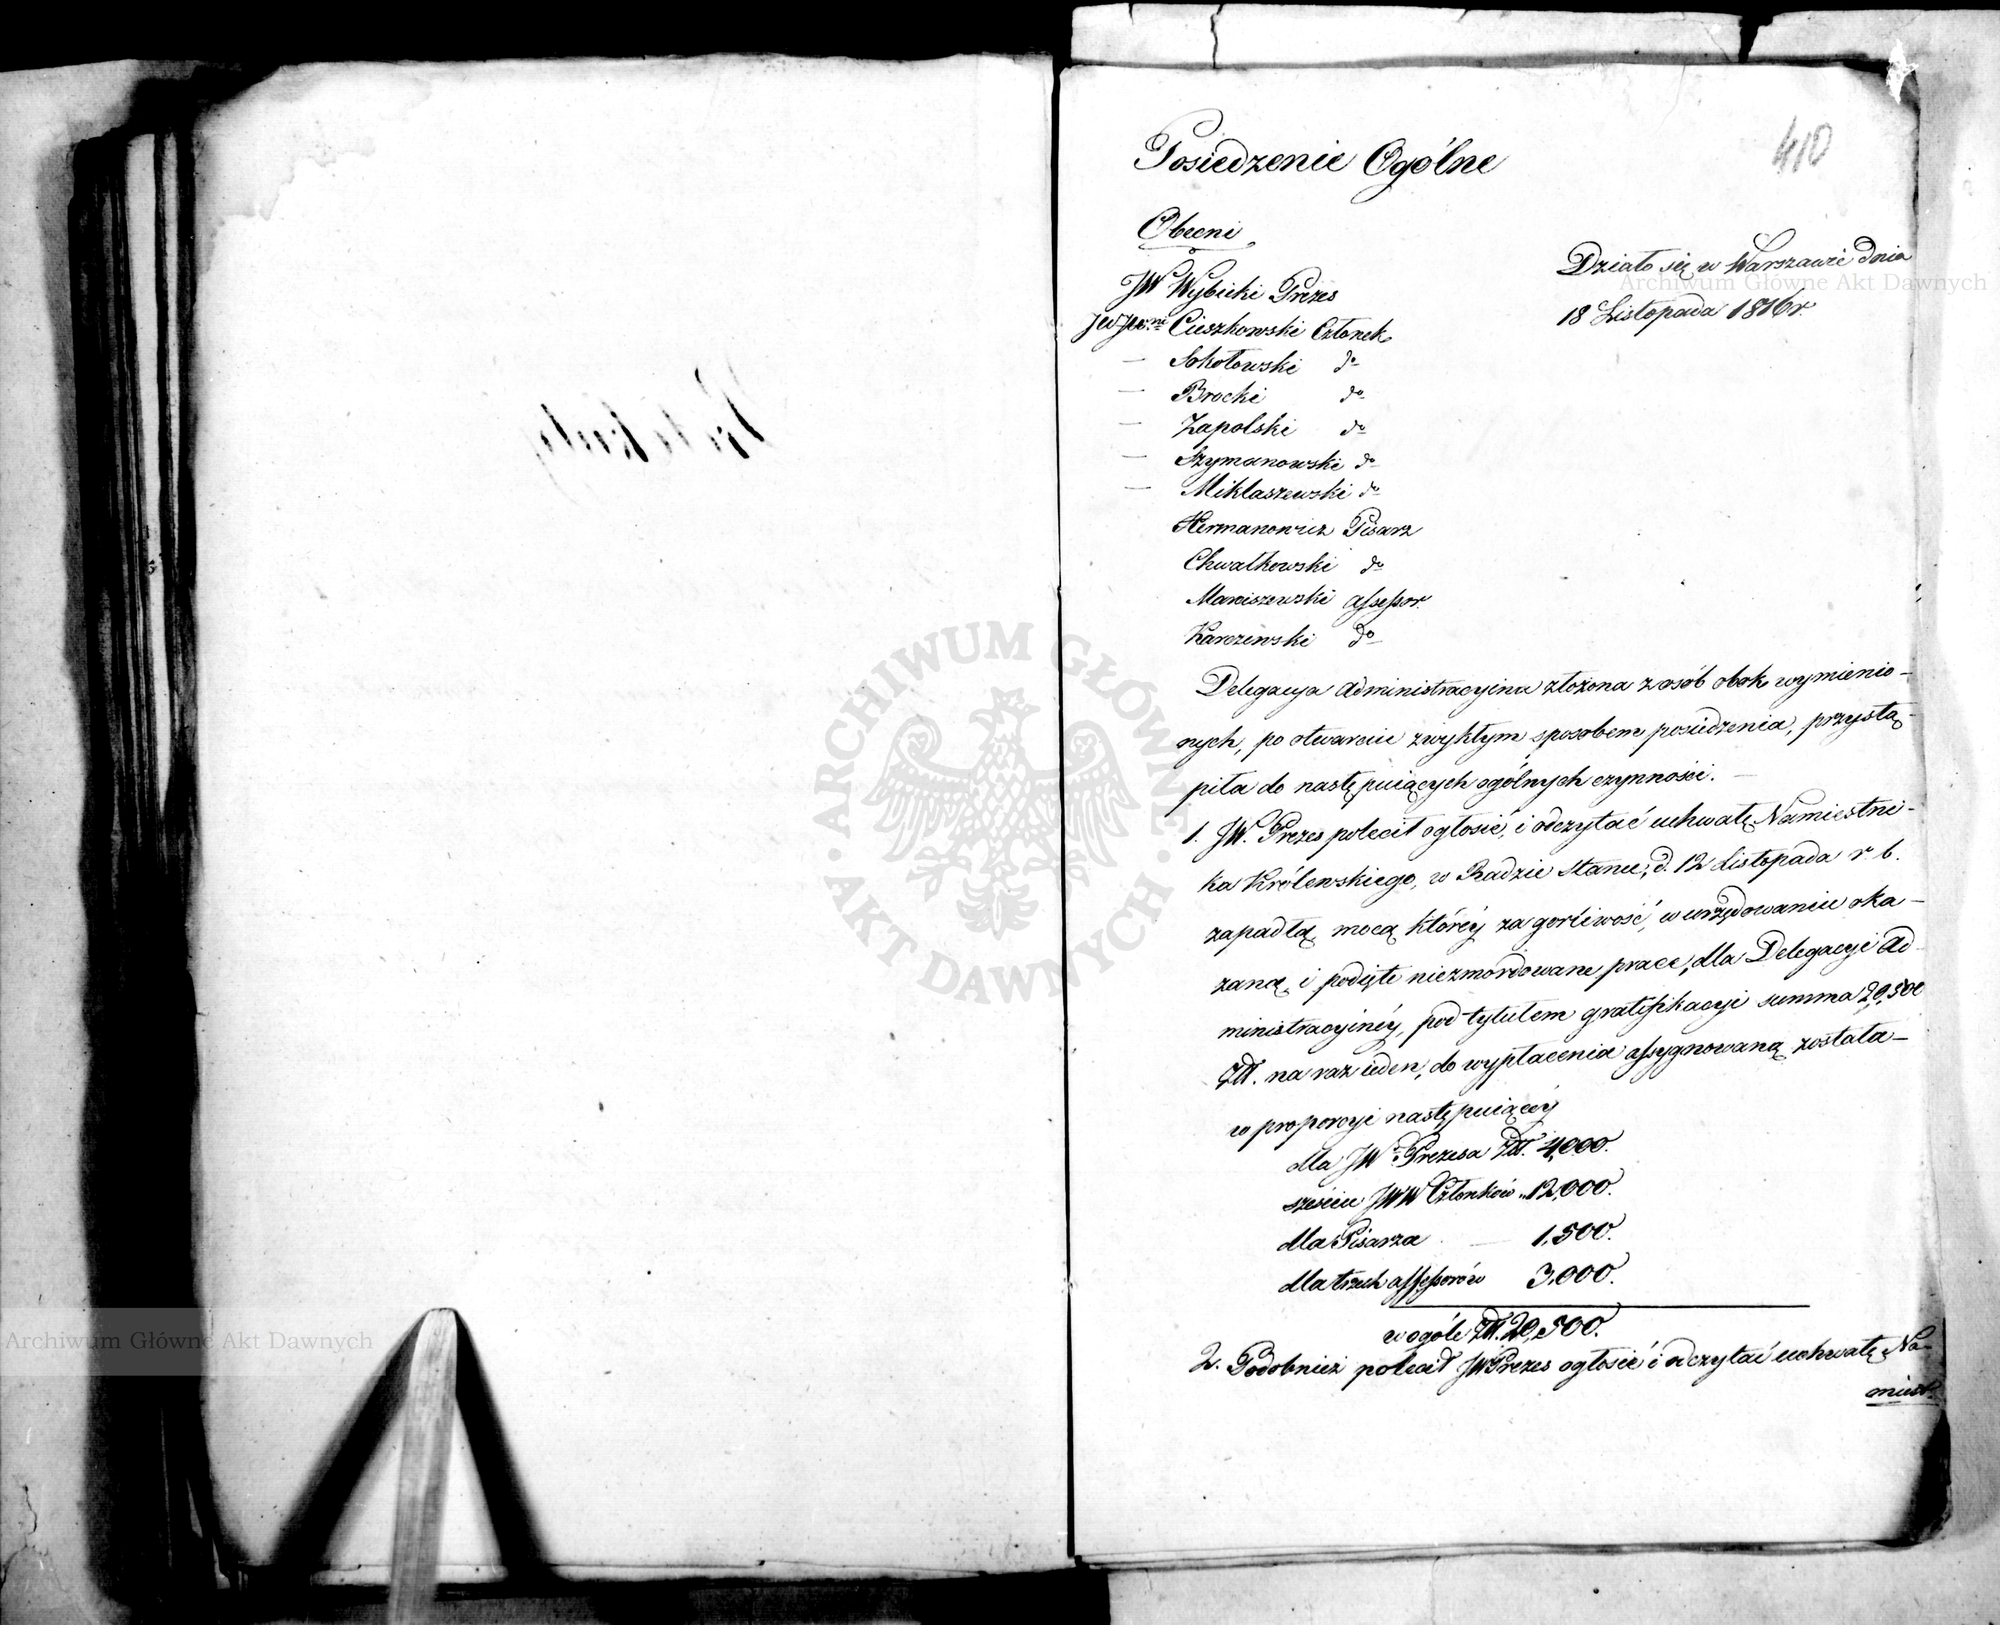 410
Posiedzenie Ogólne
Obecni
Działo się w Warszawie dnia
18 Listopada 1816 r
JW Wybicki Prezes
Cieszkowski Członek
— Sokołowski do
— Brocki do
— Zapolski do
— Szymanowski do
— Mikłaszewski do
Hermanowicz Pisarz
Chwalkowski do
Marciszewski assessor.
Karczewski do
Delegacya administracyina złożona z osób obok wymienio-
nych, po otwarciu zwykłym sposobem posiedzenia, przystą-
piła do następuiących ogólnych czynności. —
1. JW. Prezes polecił ogłosić, i odczytać uchwałę Namiestni-
ka Królewskiego, w Radzie Stanu, d. 12 Listopada r. b.
zapadłą, mocą któréy za gorliwość, w urzędowaniu oka-
zaną, i podięte niezmordowane prace, dla Delegacyi Ad-
ministracyinéy, pod tytułem gratifikacyi summa 20,500
Złł. na raz ieden, do wypłacenia assygnowaną została—
w proporcyi następuiącéy
dla JW Prezesa Złł. 4,000.
sześciu JWW Członków „ 12,000.
dla Pisarza — 1,500.
dla trzech assessorów 3,000.
w ogóle Złł. 20,500.
2. Podobnież polecił JW Prezes ogłosić i odczytać uchwałę Na-
miest
Archiwum Główne Akt Dawnych
Archiwum Główne Akt Dawnych
ARCHIWUM GŁÓWNE · AKT DAWNYCH ·